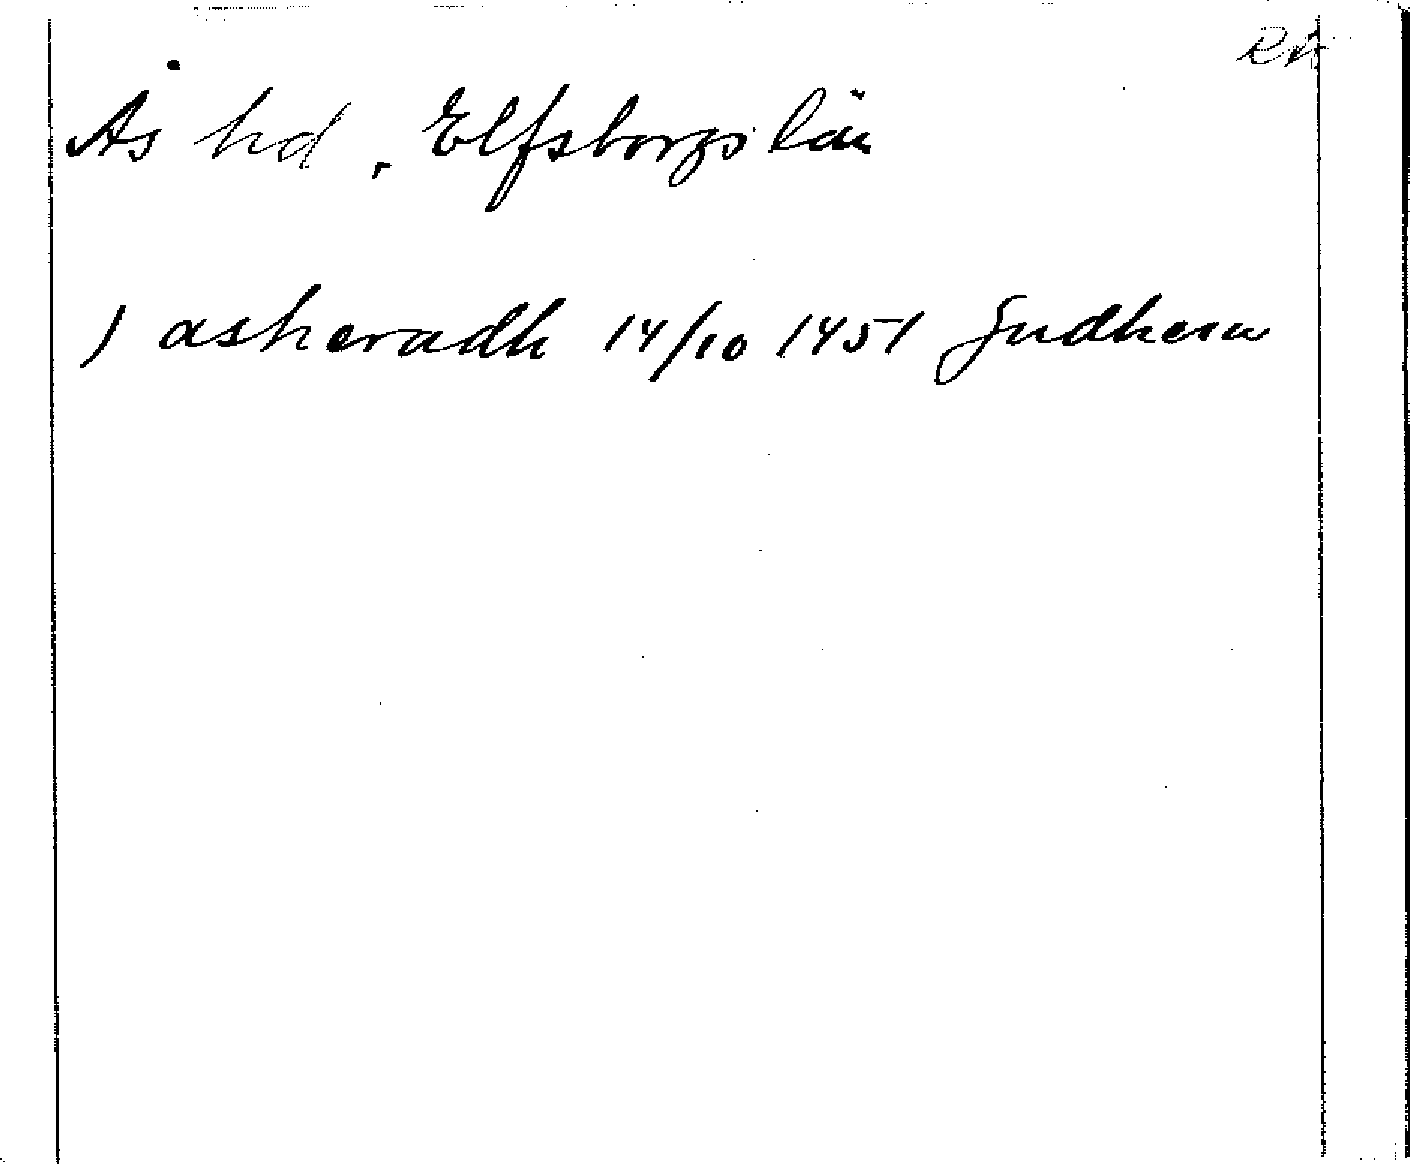 Ra
Ås hd, Elfsborgs län
) asheradh 14/10 1451 Gudhem